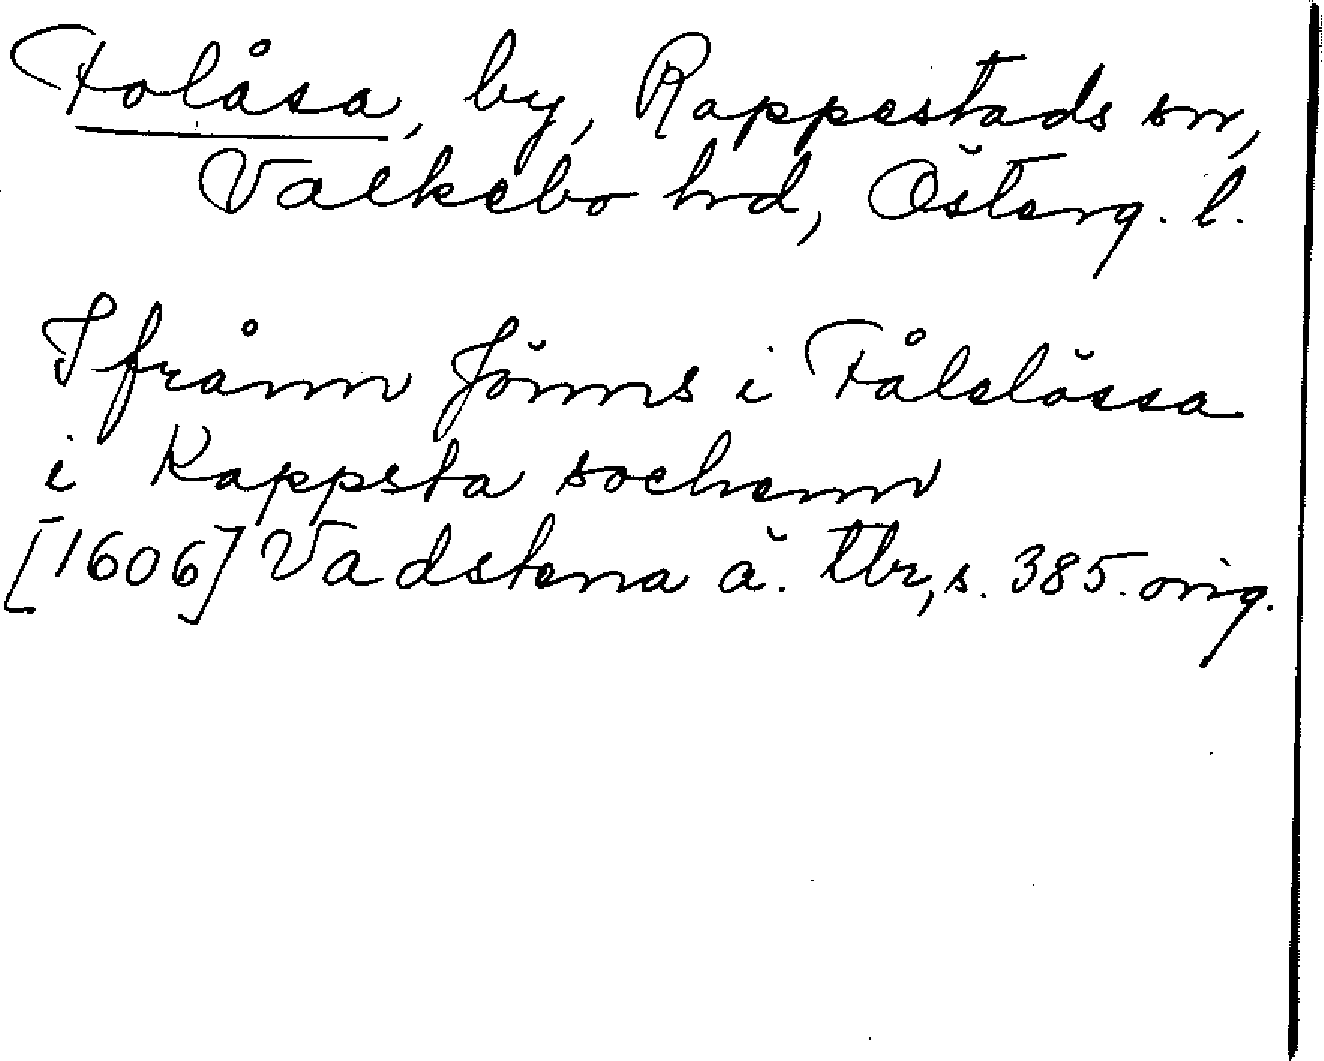 Folåsa, by, Rappestads sn,
Valkebo hrd, Österg. l.
Ifrånn Jönns i Fålelössa
i Rappsta sochenn
[1606] Vadstena ä. tbr, s. 385. orig.